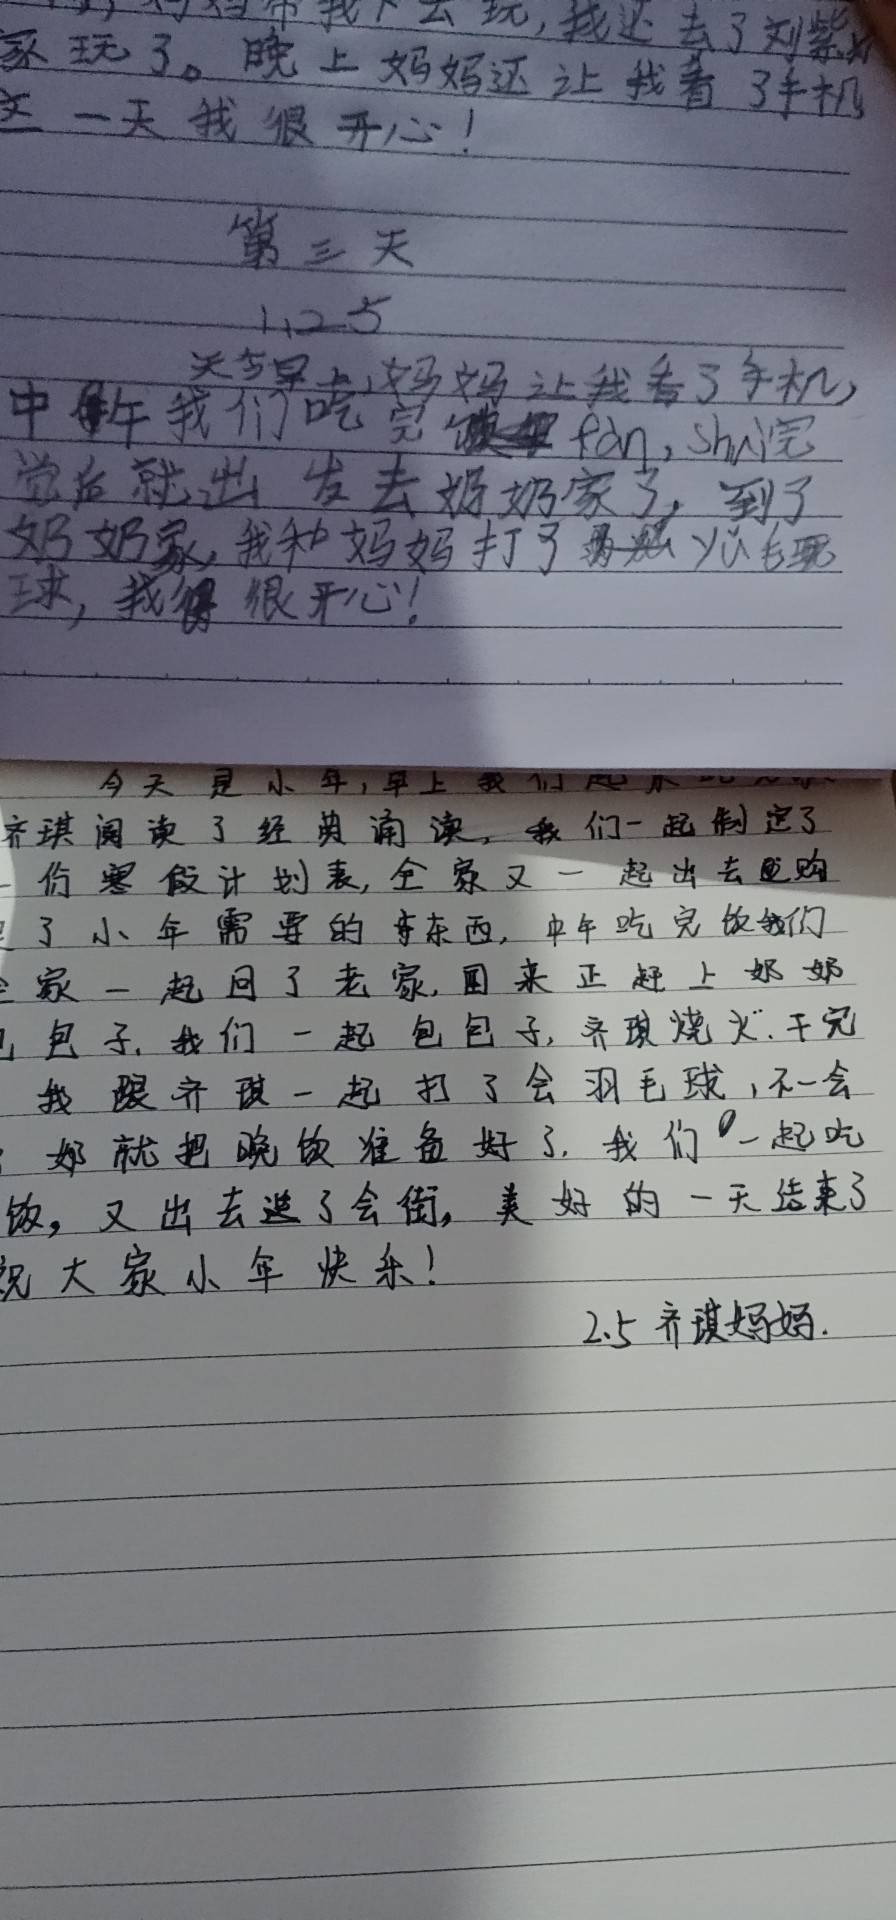 妈妈带我下去玩，我还去了刘紫
家玩了。晚上妈妈还让我看了手机
这一天我很开心！
第三天
1,25
天与早上，妈妈让我看了手机，
中午我们吃完fàn，shuì完
觉后就出发去奶奶家了，到了
奶奶家，我和妈妈打了yǔ毛
球，我很开心！
今天是小年，早上我们起来
齐琪阅读了经典诵读，我们一起制定了
一份寒假计划表，全家又一起出去购
了小年需要的东西，中午吃完饭我们
全家一起回了老家，回来正赶上奶奶
包包子，我们一起包包子，齐琪烧火，干完
我跟齐琪一起打了会羽毛球，不一会
奶就把晚饭准备好了，我们一起吃
饭，又出去逛了会街，美好的一天结束了
祝大家小年快乐！
2.5 齐琪妈妈.